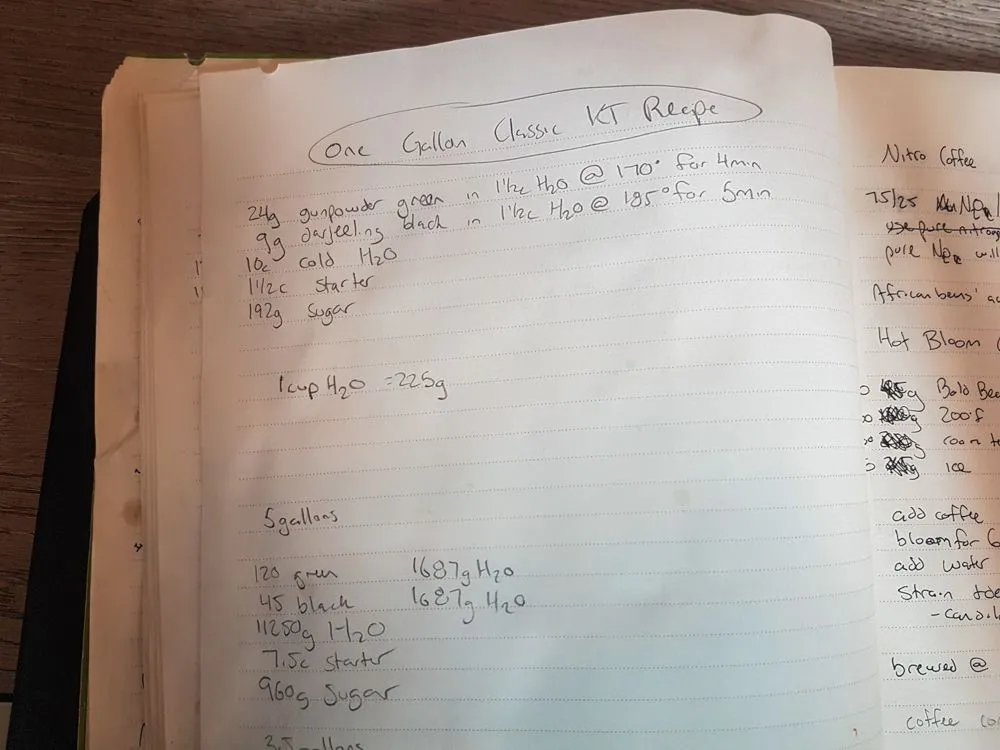 One Gallon Classic KT Recipe
24g gunpowder green in 1 1/2c H2O @ 170° for 4min
9g darjeeling black in 1 1/2c H2O @ 185° for 5min
10c cold H2O
1 1/2c starter
192g sugar
1 cup H2O = 225g
5 gallons
120 green 1687g H2O
45 black 1687g H2O
11250g H2O
7.5c starter
960g sugar
Nitro Coffee
75/25
use pure
pure
African
Hot Bloom
Bold
200°f
room
ice
add coffee
bloom for
add water
Strain
brewed @
coffee